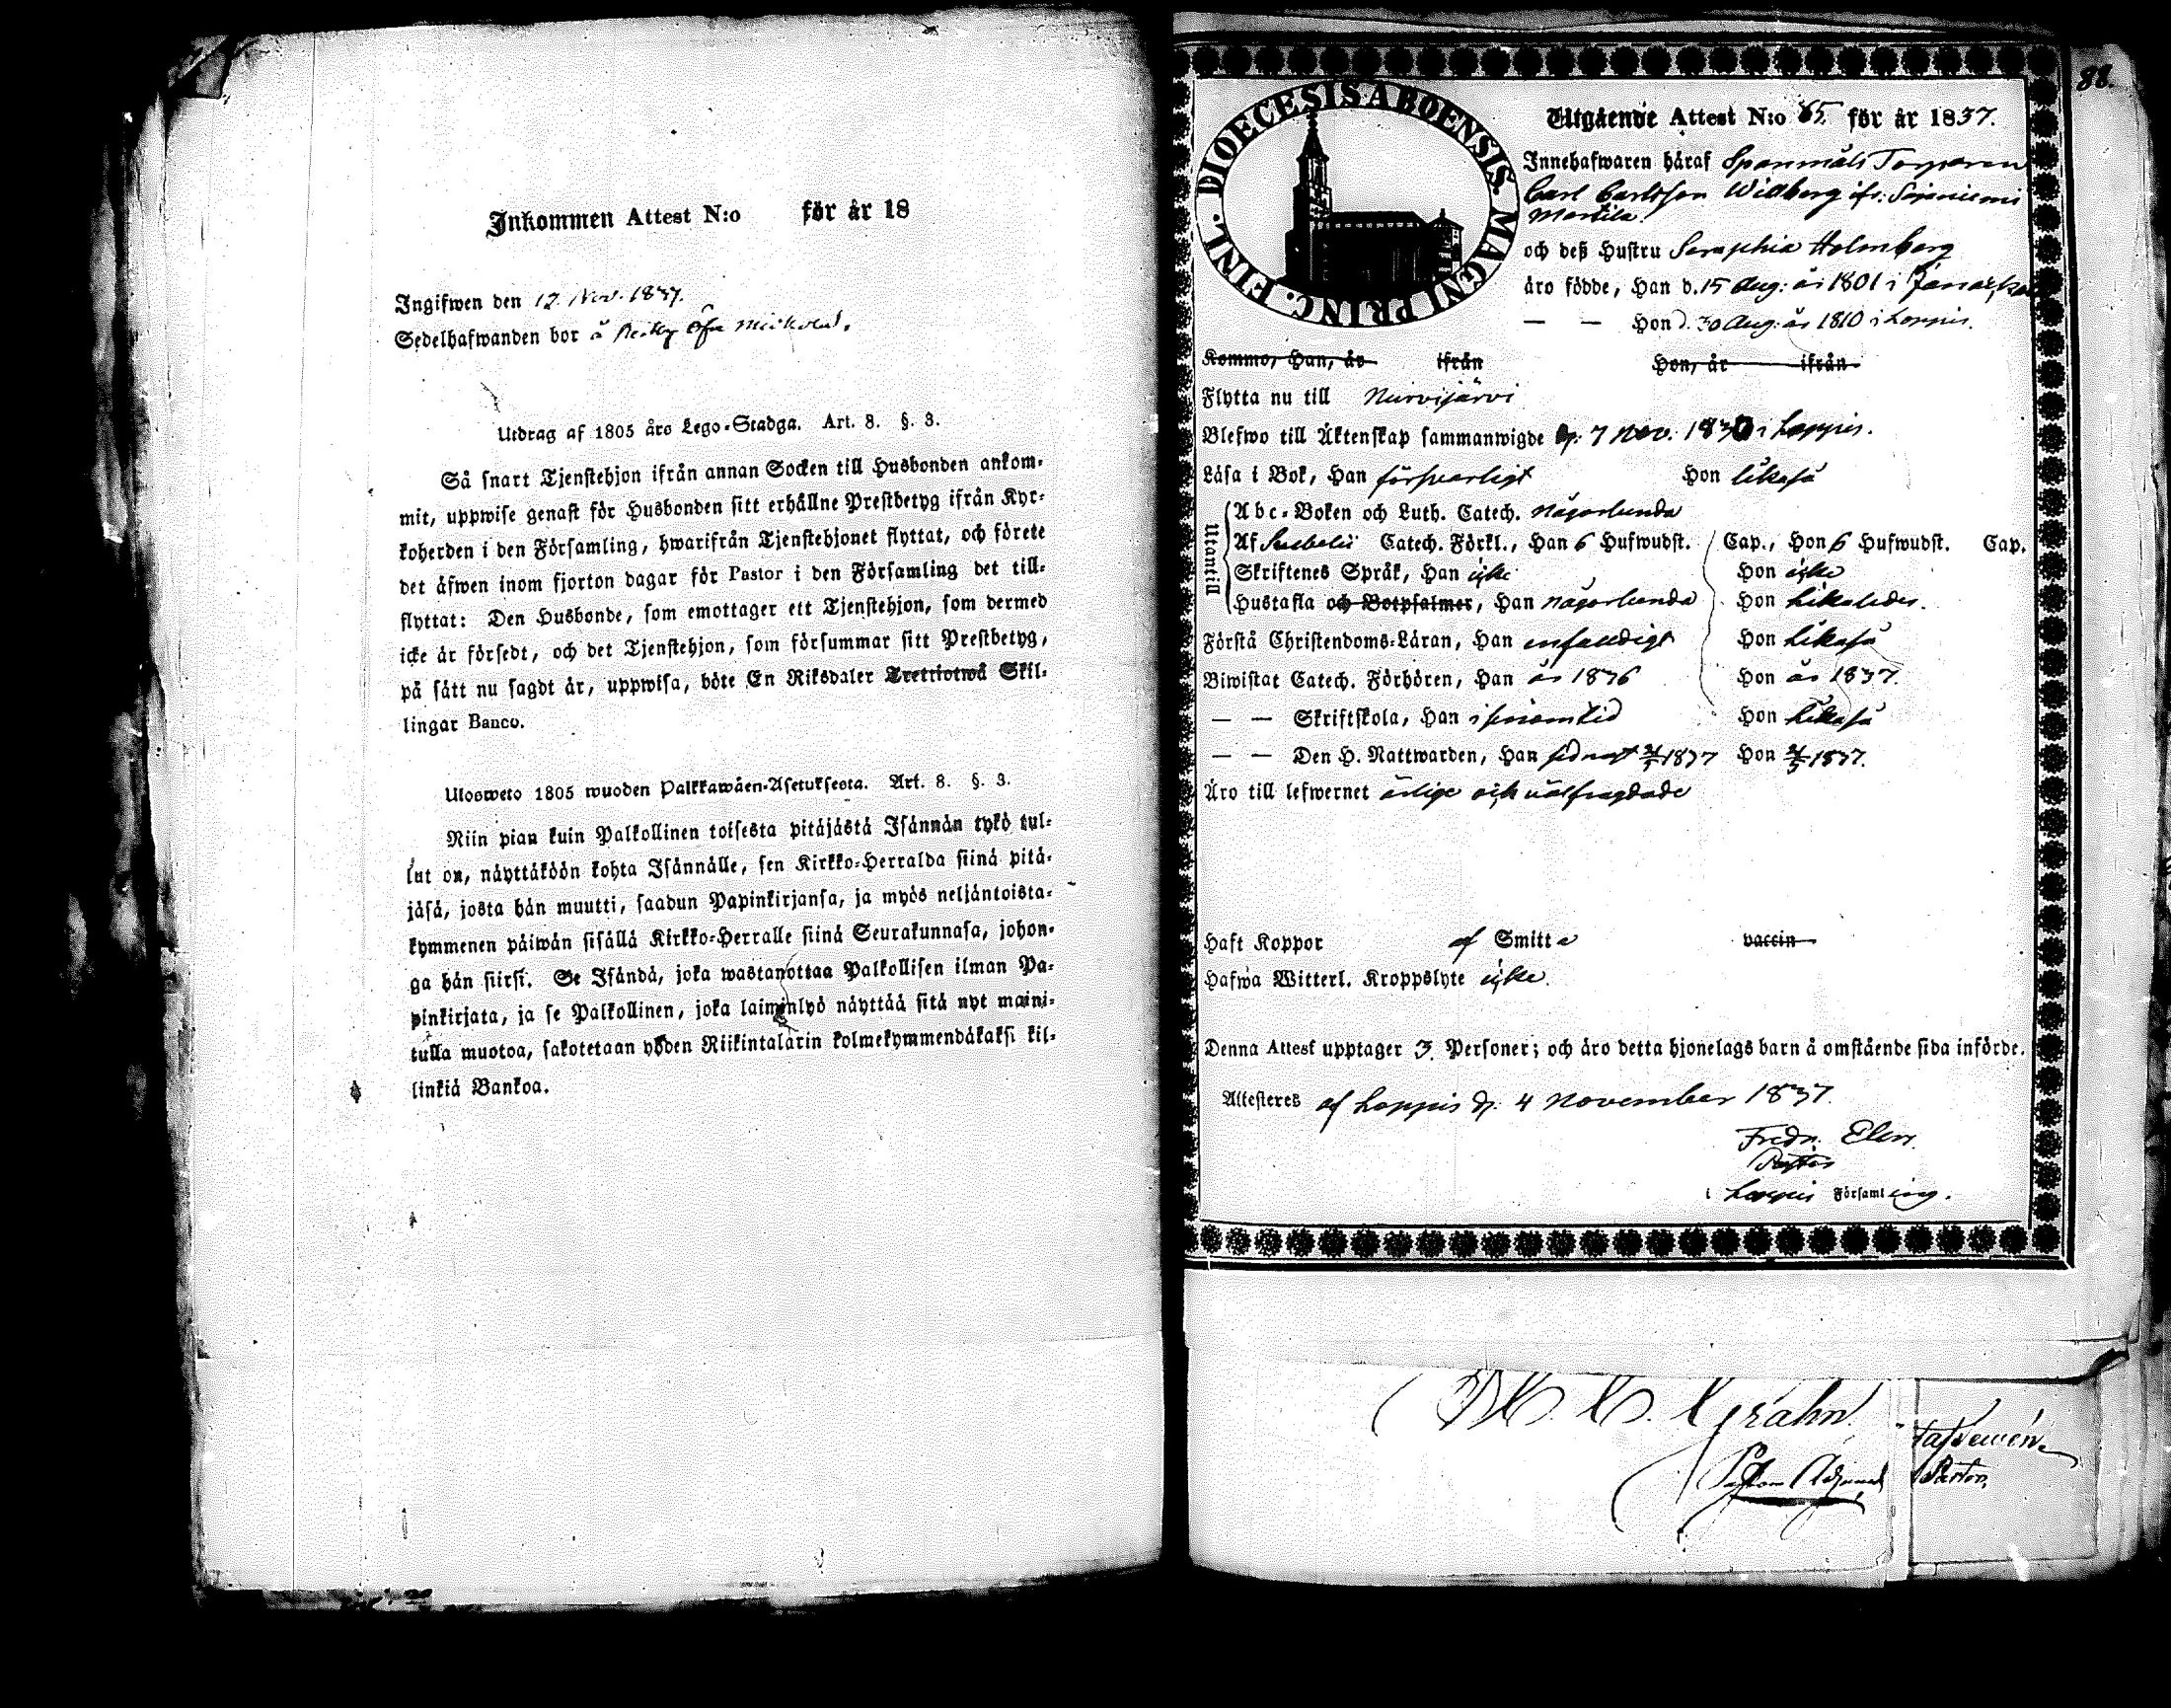 Inkommen Attest N:o för år 18
Ingifwen den 12. Nov. 1837.
Sedelhafwanden bor å
Utdrag af 1805 års Lego-Stadga. Art. 8. §. 3.
Så snart Tjenstehjon ifrån annan Socken till Husbonden ankom-
mit, uppwise genast för Husbonden sitt erhållne Prestbetyg ifrån Kyr-
koherden i den Församling, hwarifrån Tjenstehjonet flyttat, och förete
det äfwen inom fjorton dagar för Pastor i den Församling det till-
flyttat: Den Husbonde, som emottager ett Tjenstehjon, som dermed
icke är försedt, och det Tjenstehjon, som försummar sitt Prestbetyg,
på sätt nu sagdt är, uppwisa, böte En Riksdaler Trettiotwå Skil-
lingar Banco.
Ulosweto 1805 wuoden Palkkawäen-Asetuksesta. Art. 8. §. 3.
Niin pian kuin Palkollinen toisesta pitäjästä Isännän tykö tul-
lut on, näyttäköön kohta Isännälle, sen Kirkko-Herralda siinä pitä-
jäsä, josta hän muutti, saadun Papinkirjansa, ja myös neljäntoista-
kymmenen päiwän sisällä Kirkko-Herralle siinä Seurakunnasa, johon-
ga hän siirsi. Se Isändä, joka wastanottaa Palkollisen ilman Pa-
pinkirjata, ja se Palkollinen, joka laiminlyö näyttää sitä nyt maini-
tulla muotoa, sakotetaan yhden Riikintalarin kolmekymmendäkaksi kil-
linkiä Bankoa.
88.
DIOECESIS ABOENSIS. MAGNI PRINC. FINL.
Utgående Attest N:o 65 för år 1837.
Innehafwaren häraf Spanmåls Torparen
Carl Carlsson Willberg ifr: Sajaniemi
Martila.
och deß Hustru Seraphia Holmberg
äro födde, Han d. 15 Aug: år 1801 i Janakkala
— — Hon d. 30 Aug: år 1810 i Loppis.
Kommo, Han, år ifrån Hon, år ifrån
Flytta nu till Nurmijärvi
Blefwo till Äktenskap sammanwigde d: 7 Nov: 1830 i Loppis.
Läsa i Bok, Han försvarligt Hon likaså
Utantill
Abc-Boken och Luth. Catech. någorlunda
Af Svebelii Catech. Förkl., Han 6 Hufwudst. Cap., Hon 6 Hufwudst. Cap.
Skriftenes Språk, Han icke Hon icke
Hustafla och Botpsalmer, Han någorlunda Hon likaledes.
Förstå Christendoms-Läran, Han enfaldigt Hon likaså
Biwistat Catech. Förhören, Han år 1836 Hon år 1837.
— — Skriftskola, Han i sinom tid Hon likaså
— — Den H. Nattwarden, Han sednast 21/5 1837 Hon 21/5 1837.
Äro till lefwernet ärlige och välfrägdade
Haft Koppor af Smitta vaccin
Hafwa Witterl. Kroppslyte icke.
Denna Attest upptager 3. Personer; och äro detta hjonelags barn å omstående sida införde.
Attesteres af Loppis d: 4 November 1837.
Fredr. Elers.
Pastor
i Loppis Församling.
Grahn.
Pastors Adjunct
Pastor.